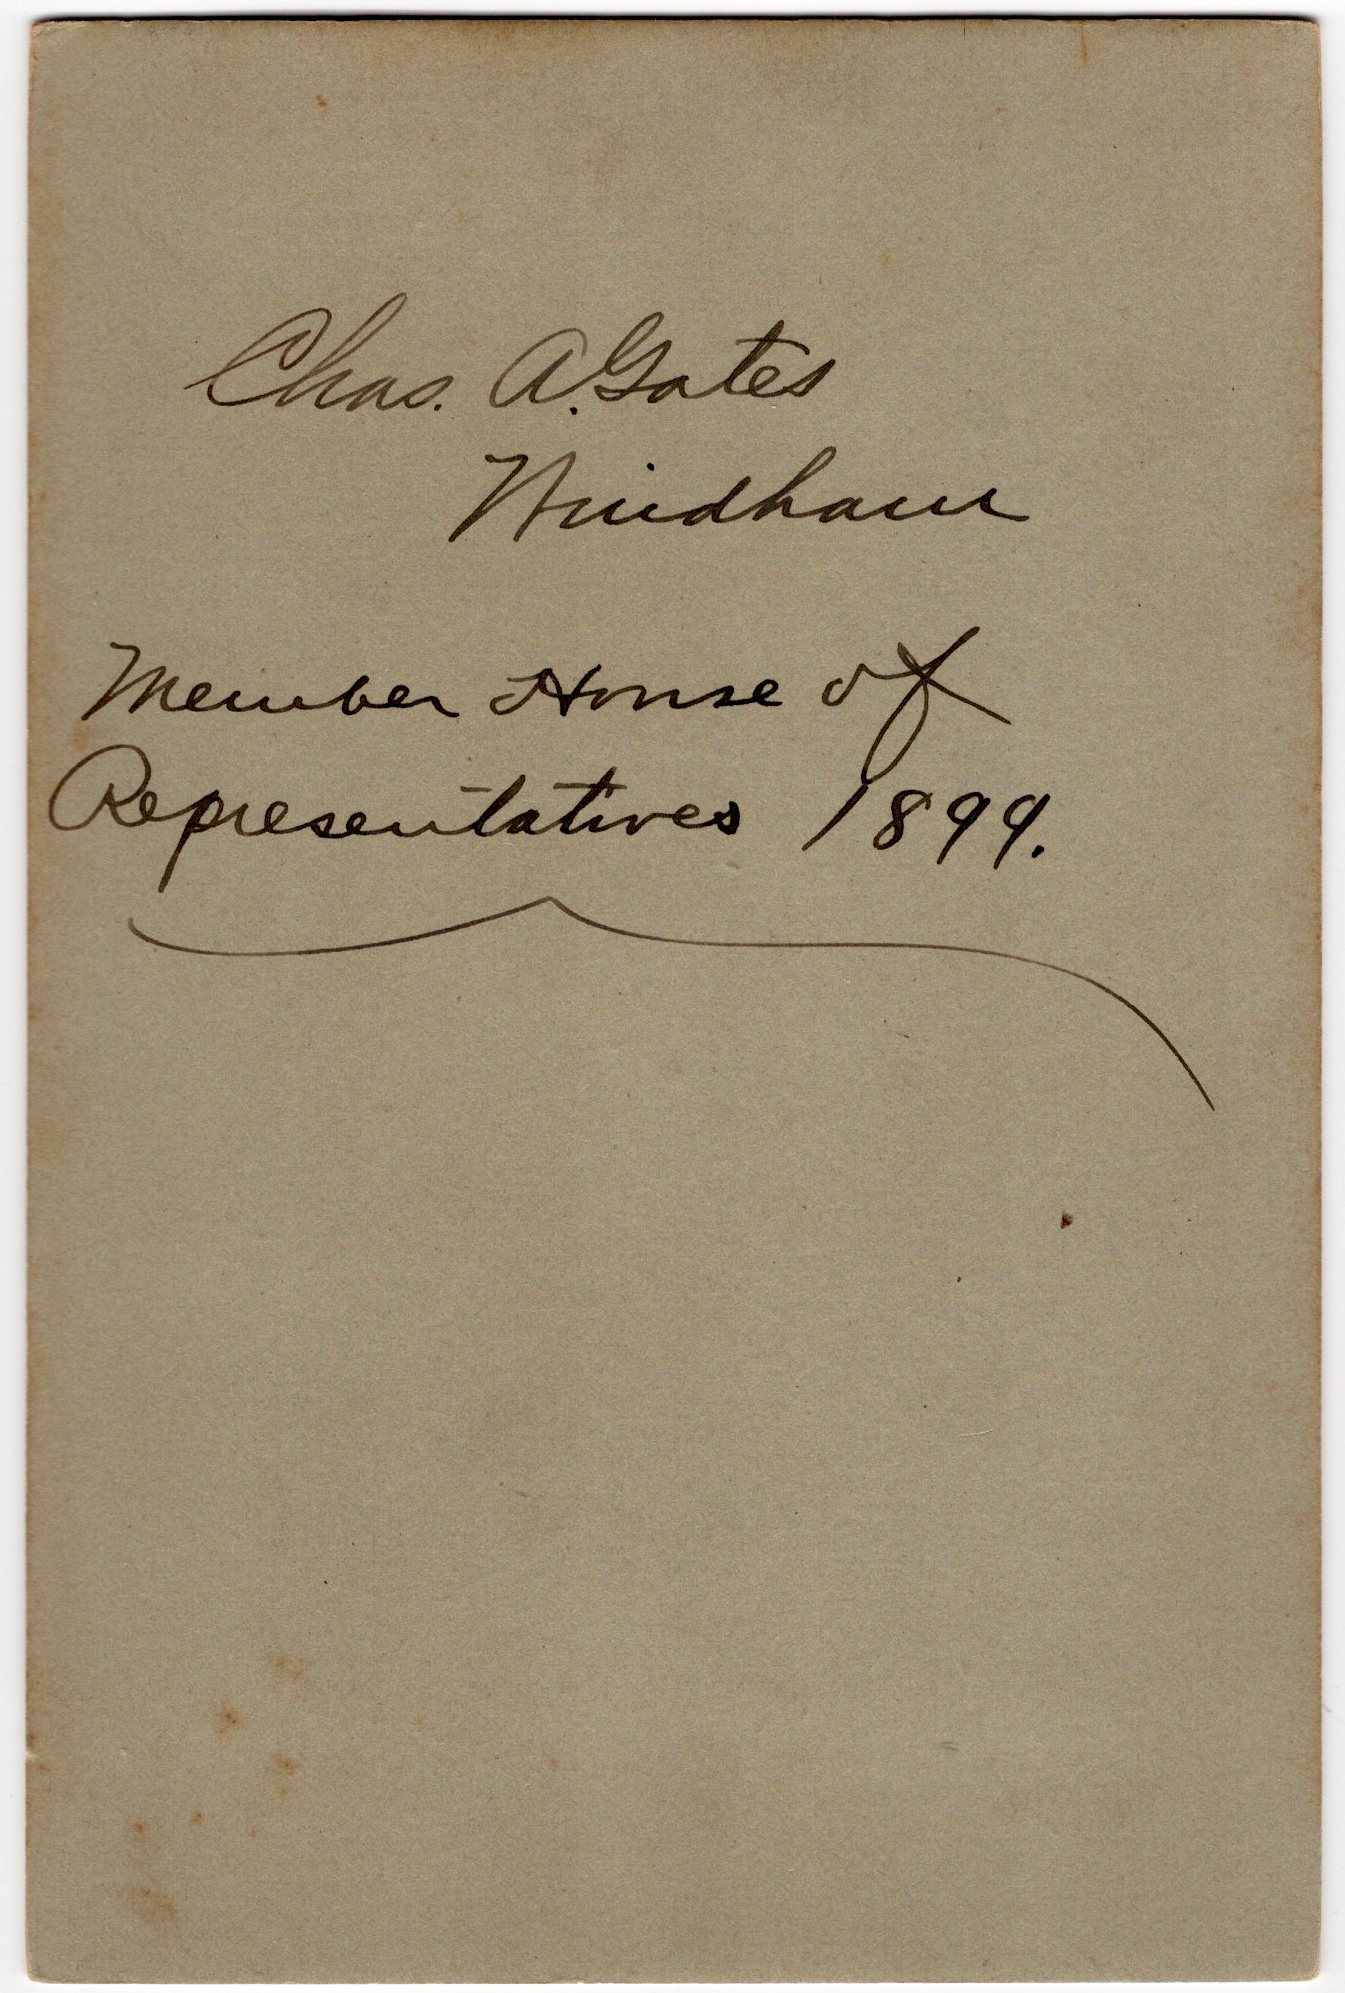 Chas. A. Gates
Windham
Member House of
Representatives 1899.